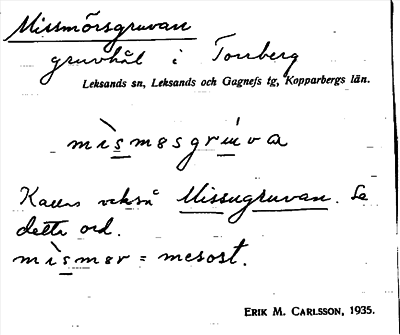 Missmörsgruvan
gruvhål i Torrberg
Leksands sn, Leksands och Gagnefs tg, Kopparbergs län.
mìsmøsgrúva
Kallas också Missugruvan. Se
detta ord.
mìsmør = mesost.
ERIK M. CARLSSON, 1935.